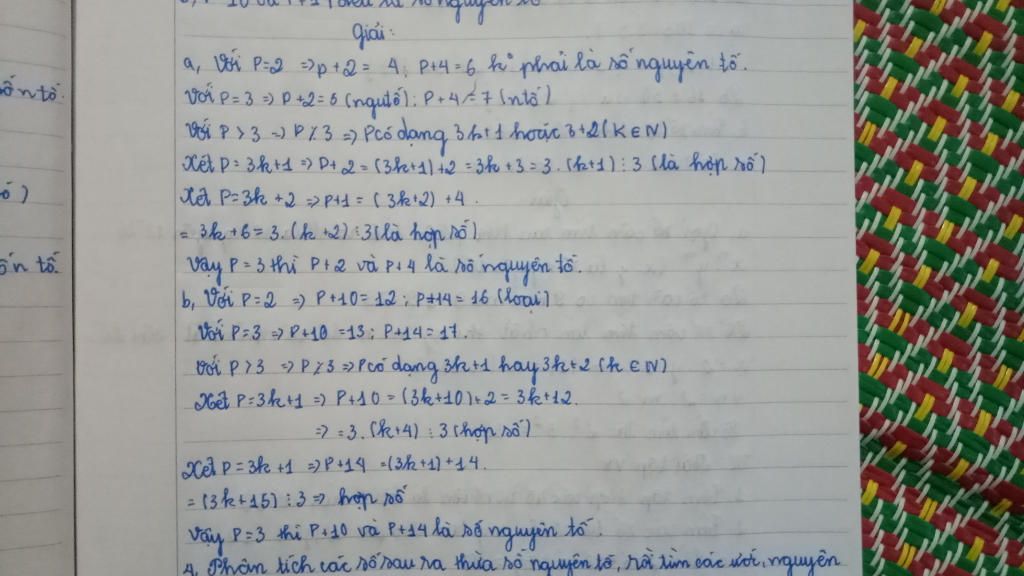 P+10 và P+14 đều là số nguyên tố
Giải:
a, Với P=2 => p+2 = 4; P+4=6 ko phải là số nguyên tố.
Với P=3 => P+2=5 (ngutố); P+4=7 (ntố)
Với P>3 => P⋮̸3 => P có dạng 3k+1 hoặc 3+2(K∈N)
Xét P=3k+1 => P+2=(3k+1)+2=3k+3=3.(k+1)⋮3 (là hợp số)
Xét P=3k+2 => P+1=(3k+2)+4.
=3k+6=3.(k+2)⋮3(là hợp số)
Vậy P=3 thì P+2 và P+4 là số nguyên tố.
b, Với P=2 => P+10=12; P+14=16 (loại)
Với P=3 => P+10=13; P+14=17.
Với P>3 => P⋮̸3 => P có dạng 3k+1 hay 3k+2 (k∈N)
Xét P=3k+1 => P+10=(3k+10)+2=3k+12.
=> =3.(k+4)⋮3(hợp số)
Xét P=3k+1 => P+14=(3k+1)+14.
=(3k+15)⋮3 => hợp số
Vậy P=3 thì P+10 và P+14 là số nguyên tố.
4, Phân tích các số sau ra thừa số nguyên tố, rồi tìm các ước, nguyên
ố n tố.
ố)
ốn tố.